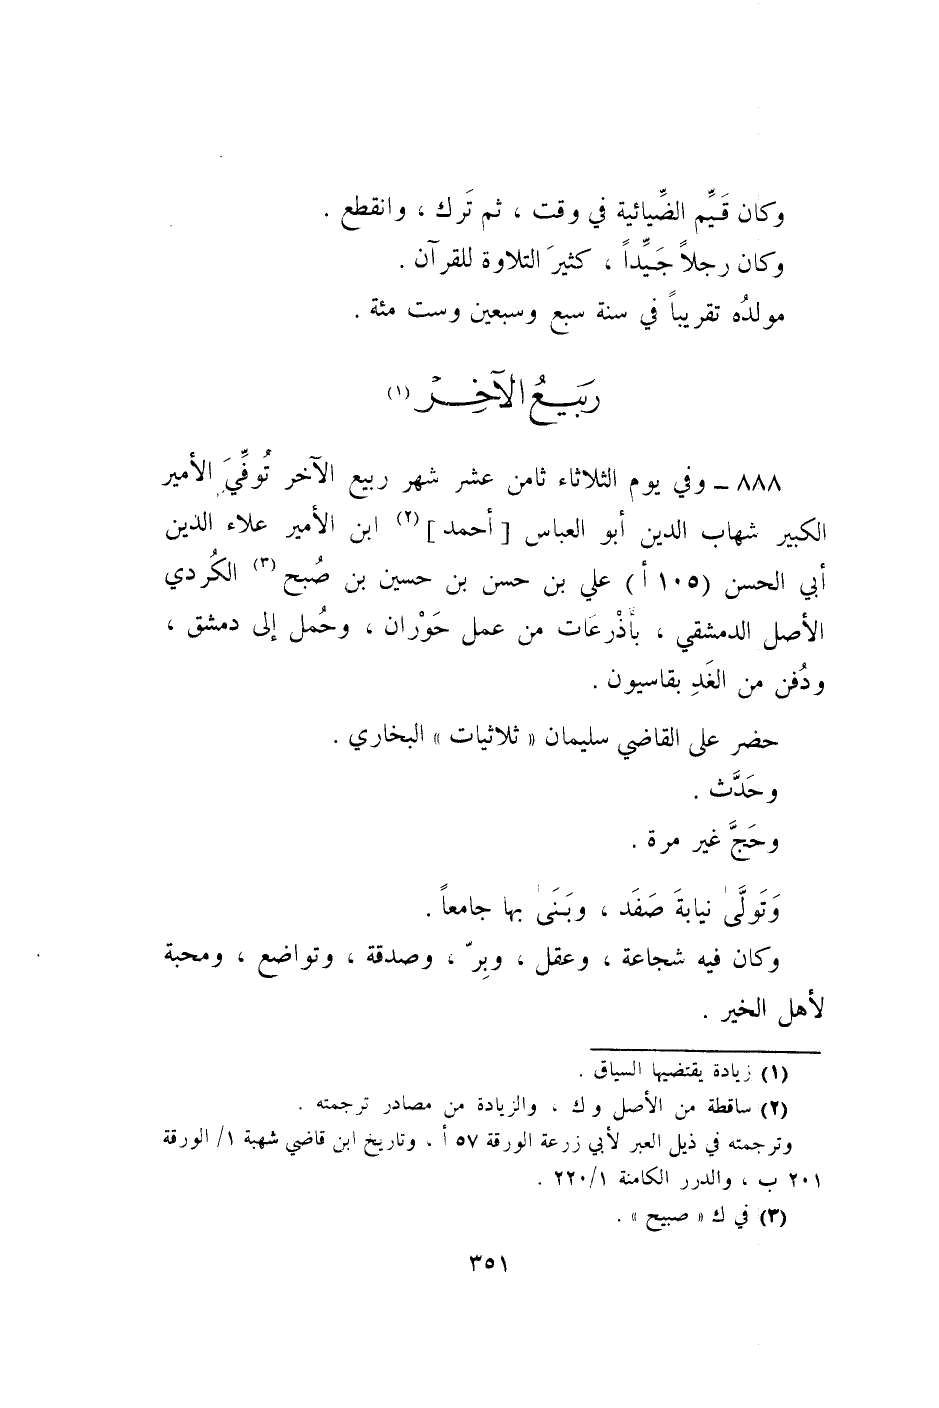 وكان قَيِّم الضِّيائية في وقت ، ثم تَرك ، وانقطع .
وكان رجلاً جَيِّداً ، كثيرَ التلاوة للقرآن .
مولدُه تقريباً في سنة سبع وسبعين وست مئة .
رَبيعُ الآخِر (١)
٨٨٨ ـ وفي يوم الثلاثاء ثامن عشر شهر ربيع الآخر تُوفِّيَ الأمير
الكبير شهاب الدين أبو العباس [ أحمد ] (٢) ابن الأمير علاء الدين
أبي الحسن (١٠٥ أ) علي بن حسن بن حسين بن صُبح (٣) الكُردي
الأصل الدمشقي ، بأَذْرعَات من عمل حَوْران ، وحُمل إلى دمشق ،
ودُفن من الغَدِ بقاسيون .
حضر على القاضي سليمان « ثلاثيات » البخاري .
وحَدَّث .
وحَجَّ غير مرة .
وَتَولَّىٰ نيابةَ صَفَد ، وبَنَىٰ بها جامعاً .
وكان فيه شجاعة ، وعقل ، وبِرّ ، وصدقة ، وتواضع ، ومحبة
لأهل الخير .
(١) زيادة يقتضيها السياق .
(٢) ساقطة من الأصل و ك ، والزيادة من مصادر ترجمته .
وترجمته في ذيل العبر لأبي زرعة الورقة ٥٧ أ . وتاريخ ابن قاضي شهبة ١/ الورقة
٢٠١ ب ، والدرر الكامنة ٢٢٠/١ .
(٣) في ك « صبيح » .
٣٥١